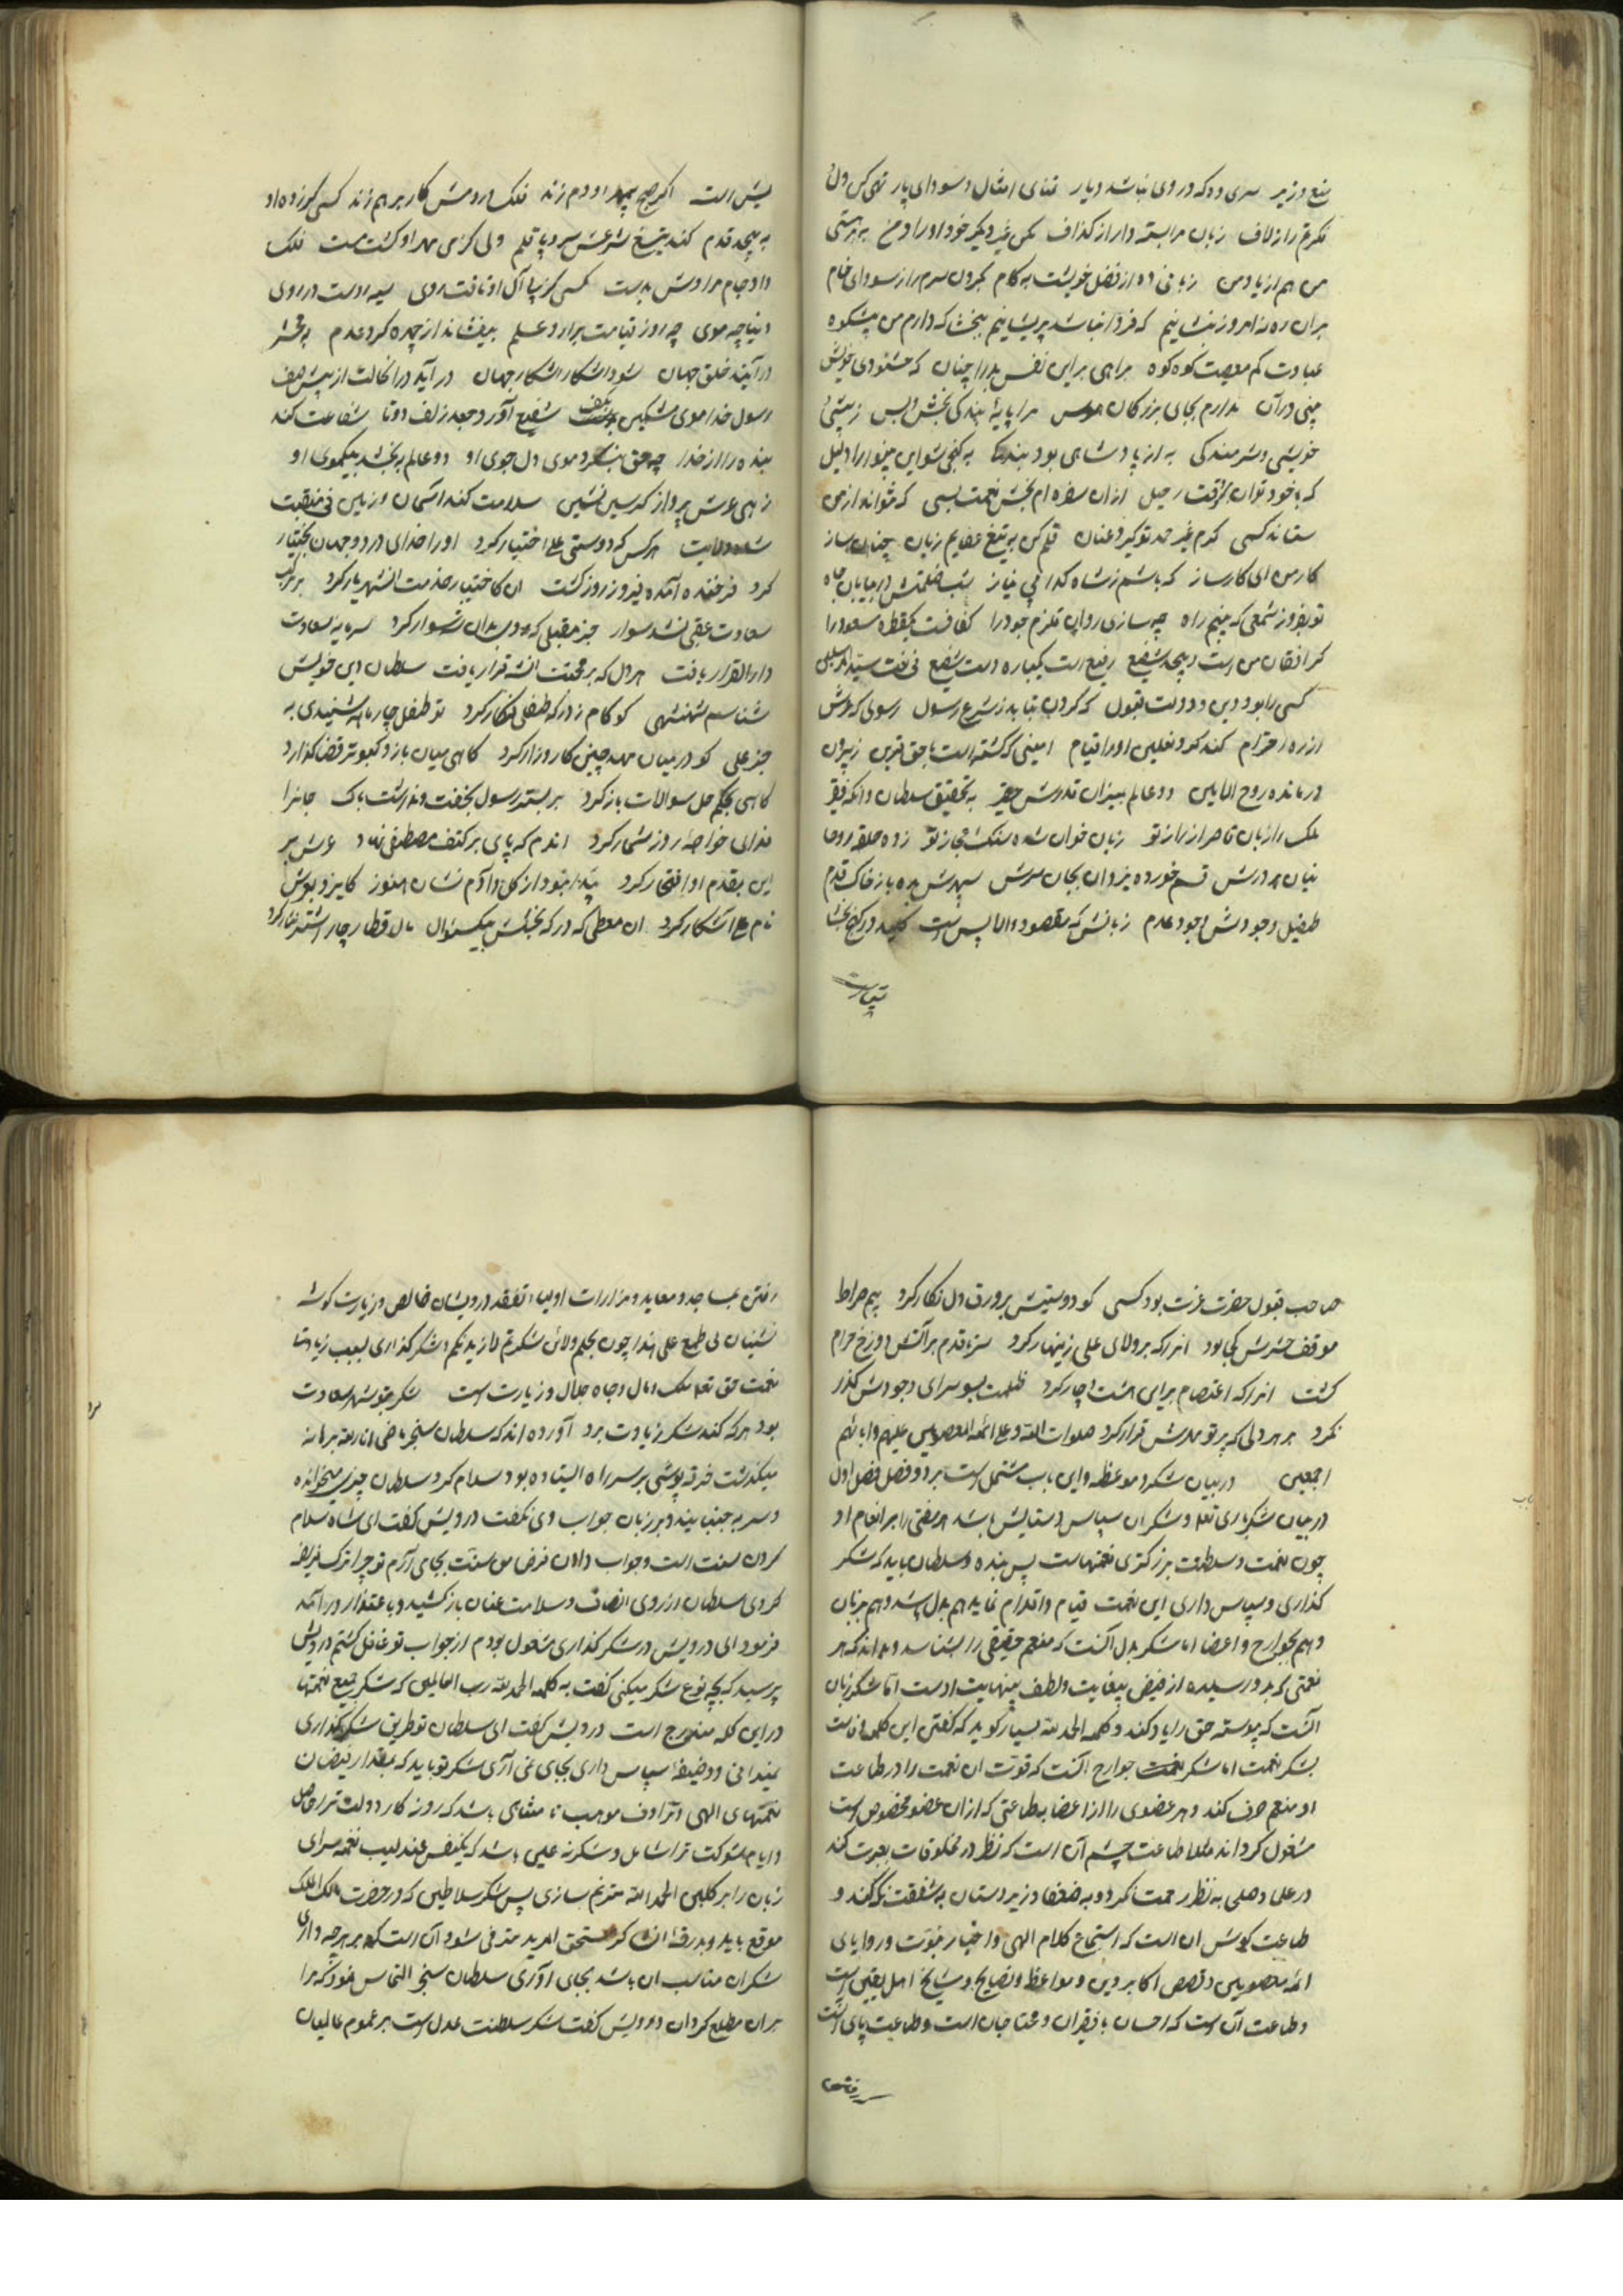 منع وزیر سری ده که در وی نباشد دیار تمنای امثال و سودای یار تهی کن دل
فکرتم را ز لاف زبان مرا بسته دار از گذاف مکن غیر و یکسر خود او را دمخ به هستی
من هم از یاد من زبانی ده از فضل خویشت به کام بحردل سرم را ز سودای خام
بران ره نه امروز بنشانیم که فردا نباشد پریشانیم ببخشا که دارم من پشکوه
عبادت کم معصیت کوه کوه براهی بر این نفس بد را چنان که خشنودی خویش
بینی در آن ندارم بجای بزرگان هوس مرا پایهٔ بندگی بخش و بس ز پیشی
خویشی و شرمندگی به از پادشاهی بود بندگی به کنجی شو این بینوا را دلیل
که با خود توان گرفت رحیل از آن سفره ام بخش نعمت بسی که نتواند از من
ستاند کسی کرم غیر حمد تو گیرد عنان قلم کن به تیغ عطایم زبان چنان ساز
کار من ای کارساز که باشم ز شاه و گدا بی نیاز شب ظلمتش در بیابان چاه
تو بفروز شمعی که بینم راه چه سازی روان قلزم جود را کفافت یکقطره مسعود را
کر افغان من است و بیحد شفیع رفیع است یکباره دست شفیع فی نعت سید المرسلین
کسی را بود دین و دولت قبول که گردن نتابد ز شرع رسول رسولی که عرش
از ره احترام کند کرد نعلین او را قیام امینی که گشته است با حق قرین ز پیرون
درمانده روح الامین دو عالم بمیزان قدرش حقیر به تحقیق سلطان و آنکه فقیر
ملک را زبان قاصر از راز تو زبان خوان شده سنگ اعجاز تو زده حلقه روحا
نیان بر درش قسم خورده یزدان بجان و سرش سپهرش بره باز خاک قدم
طفیل وجودش وجود و عدم زبانش که مقصود و الماس است کلید در گنج بخشا
یش است اگر صبح بی مهر او دم زند فلک در دمش کار بر هم زند کسی کو زده او
به پیچد قدم کند تیغ شرعش سر و پا قلم ولی کز می مهر او گشت مست فلک
داد جام مرادش بدست کسی کز پی آل او تافت روی سیه روست در روی
دنیا چه موی چه روز قیامت بر آرد علم بیفشاند از چهره گرد عدم به محشر
در آیند خلق جهان شود آشکار آشکار جهان در آید در آن حالت از پیش صف
رسول خدا موی مشکین بکف شفیع آورد جعد زلف دوتا شفاعت کند
بنده را از خدا چه حق بنگرد موی دل جوی او دو عالم ببخشد بیکموی او
زهی عرش پرواز کرسی نشین سلامت کند آسمان و زمین فی منقبت
شاه ولایت هر کس که دوستی علی اختیار کرد او را خدای در دو جهان بختیار
کرد فرخنده آمده فیروز روز گشت آن کاختیار خدمت آن شهریار کرد بر مرکب
سعادت عقبی نشد سوار جز مقبلی که بدان شهسوار کرد سرمایه سعادت
دار القرار یافت هر دل که بر محبت آن شه قرار یافت سلطان دین خویش
شناسم شهنشهی کو کام زدر که طفلی فکار کرد تو طفل چار ماهه شنیدی به
جز علی کو در میان مهد چنین کارزار کرد گاهی میان باز و کبوتر قضا گذارد
گاهی بحکم حل سوالات باز کرد بر بستر رسول بخفت و نداشت باک جانرا
فدای خواجهٔ روز شمار کرد اندم که پای بر کتف مصطفی نهاد عرش بر
این بقدم او افتخار کرد پیدا نبود از گل و آدم نشان هنوز کایزد بعرش
نام علی آشکار کرد آن معطی که درگه بخشش بیکسؤال مال و قطار چار اشتر نثار کرد
صاحب قبول حضرت عزت بود کسی کو دوستیش بر ورق دل نگار کرد بیم صراط
موقف حشرش کجا بود آنرا که بر ولای علی زینهار کرد سر تا قدم بر آتش دوزخ حرام
گشت آنرا که اعتصام برای هشت و چار کرد ظلمت بسوی سرای وجودش گذر
نکرد بر هر دلی که پرتو مهرش قرار کرد صلوات الله و علی ائمة المعصومین علیهم و ابائهم
اجمعین در بیان شکر و موعظه و این باب مشتمل است بر دو فصل فصل اول
در بیان شکر باری تعالی و شکر آن سپاس و ستایش باشد هر مفتی را بر انعام او
چون نعمت و سلطنت بزرگتری نعمتهاست پس بنده و سلطان باید که شکر
گذاری و سپاس داری این نعمت قیام و اقدام نماید هم بدل باشد و هم بزبان
و هم بجوارح و اعضا اما شکر بدل آنست که منعم حقیقی را بشناسد و بداند که هر
نعمتی که بدو رسیده از فیض بیغایت و لطف بینهایت اوست اما شکر زبان
آنست که پیوسته حق را یاد کند و کلمه الحمد لله بسیار گوید که گفتن این کلمه وفاست
بشکر نعمت اما شکر نعمت جوارح آنست که قوت آن نعمت را در طاعت
او منعم صرف کند و هر عضوی را از اعضا به طاعتی که از آن عضو مخصوص است
مشغول گرداند مثلا طاعت چشم آن است که نظر در مخلوقات بعبرت کند
در علما و صلحا به نظر رحمت نگرد و به ضعفا و زیردستان به شفقت نگه کند و
طاعت گوش آن است که استماع کلام الهی و اخبار نبوت و روایای
ائمه معصومین و قصص اکابر دین و مواعظ و نصایح و مشایخ اهل یقین است
و طاعت آن است که احسان با فقیران و محتاجان است و طاعت پای آنست
رفتن بمساجد و معابد و مزارات اولیا و تفقد درویشان خالص و زیارت گوشه
نشینان بی طمع علی هذا چون بحکم و لئن شکرتم لازیدنکم و شکر گذاری بسبب زیادتیا
نعمت حق تعالی ملک و مال و جاه جلال و زیارت است شکر جوشهر سعادت
بود هر که کند شکر زیادت برد آورده اند که سلطان سنجر ماضی انار الله برهانه
میگذشت خرقه پوشی بر سر راه ایستاده بود سلام کرد سلطان چیزی میخوانده
و سر به جنبانید و بر زبان جواب وی نگفت درویش گفت ای شاه سلام
کردن سنت است و جواب دادن فرض من سنت بجای آرم تو چرا ترک فریضه
کردی سلطان از روی انصاف و سلامت عنان باز کشید و با عتذار در آمد
فرمود ای درویش در شکر گذاری مشغول بودم از جواب تو غافل گشتم درویش
پرسید که بچه نوع شکر میکنی گفت به کلمه الحمد لله رب العالمین که شکر جمیع نعمتها
در این کلمه مندرج است درویش گفت ای سلطان تو طریق شکر گذاری
نمیدانی و وظیفهٔ سپاس داری بجای نمی آری شکر تو باید که بمقدار فیضان
نعمتهای الهی و ترادف مواهب نامتناهی باشد که روزگار دولت ترا حاصل
و ایام شوکت ترا شامل و شکر نه همین باشد که یکنفس عندلیب نغمه سرای
زبان را بر گلبن الحمد لله مترنم سازی پس شکر سلاطین که در حضرت مالک الملک
موقع یابد و بدرقهٔ آن که مستحق المزید مترقی شود آن است که بر هر چه داری
شکر آن مناسب آن باشد بجای آوری سلطان سنجر التماس نمود که مرا
بر آن مطلع گردان درویش گفت شکر سلطنت عدل است بر عموم عالمیان